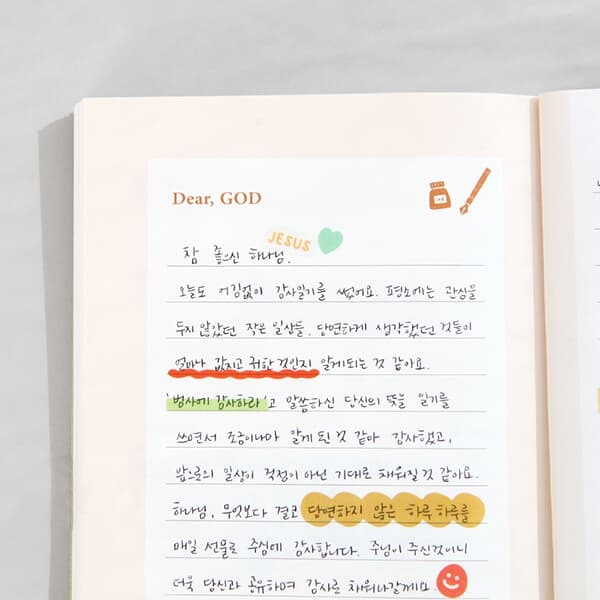 Dear, GOD
JESUS
참 좋으신 하나님.
오늘도 어김없이 감사일기를 썼어요. 평소에는 관심을
두지 않았던 작은 일상들, 당연하게 생각했던 것들이
얼마나 값지고 귀한 것인지 알게되는 것 같아요.
'범사에 감사하라'고 말씀하신 당신의 뜻을 일기를
쓰면서 조금이나마 알게 된 것 같아 감사했고,
앞으로의 일상이 걱정이 아닌 기대로 채워질 것 같아요.
하나님, 무엇보다 결코 당연하지 않은 하루하루를
매일 선물로 주심에 감사합니다. 주님이 주신것이니
더욱 당신과 공유하며 감사로 채워나갈게요.